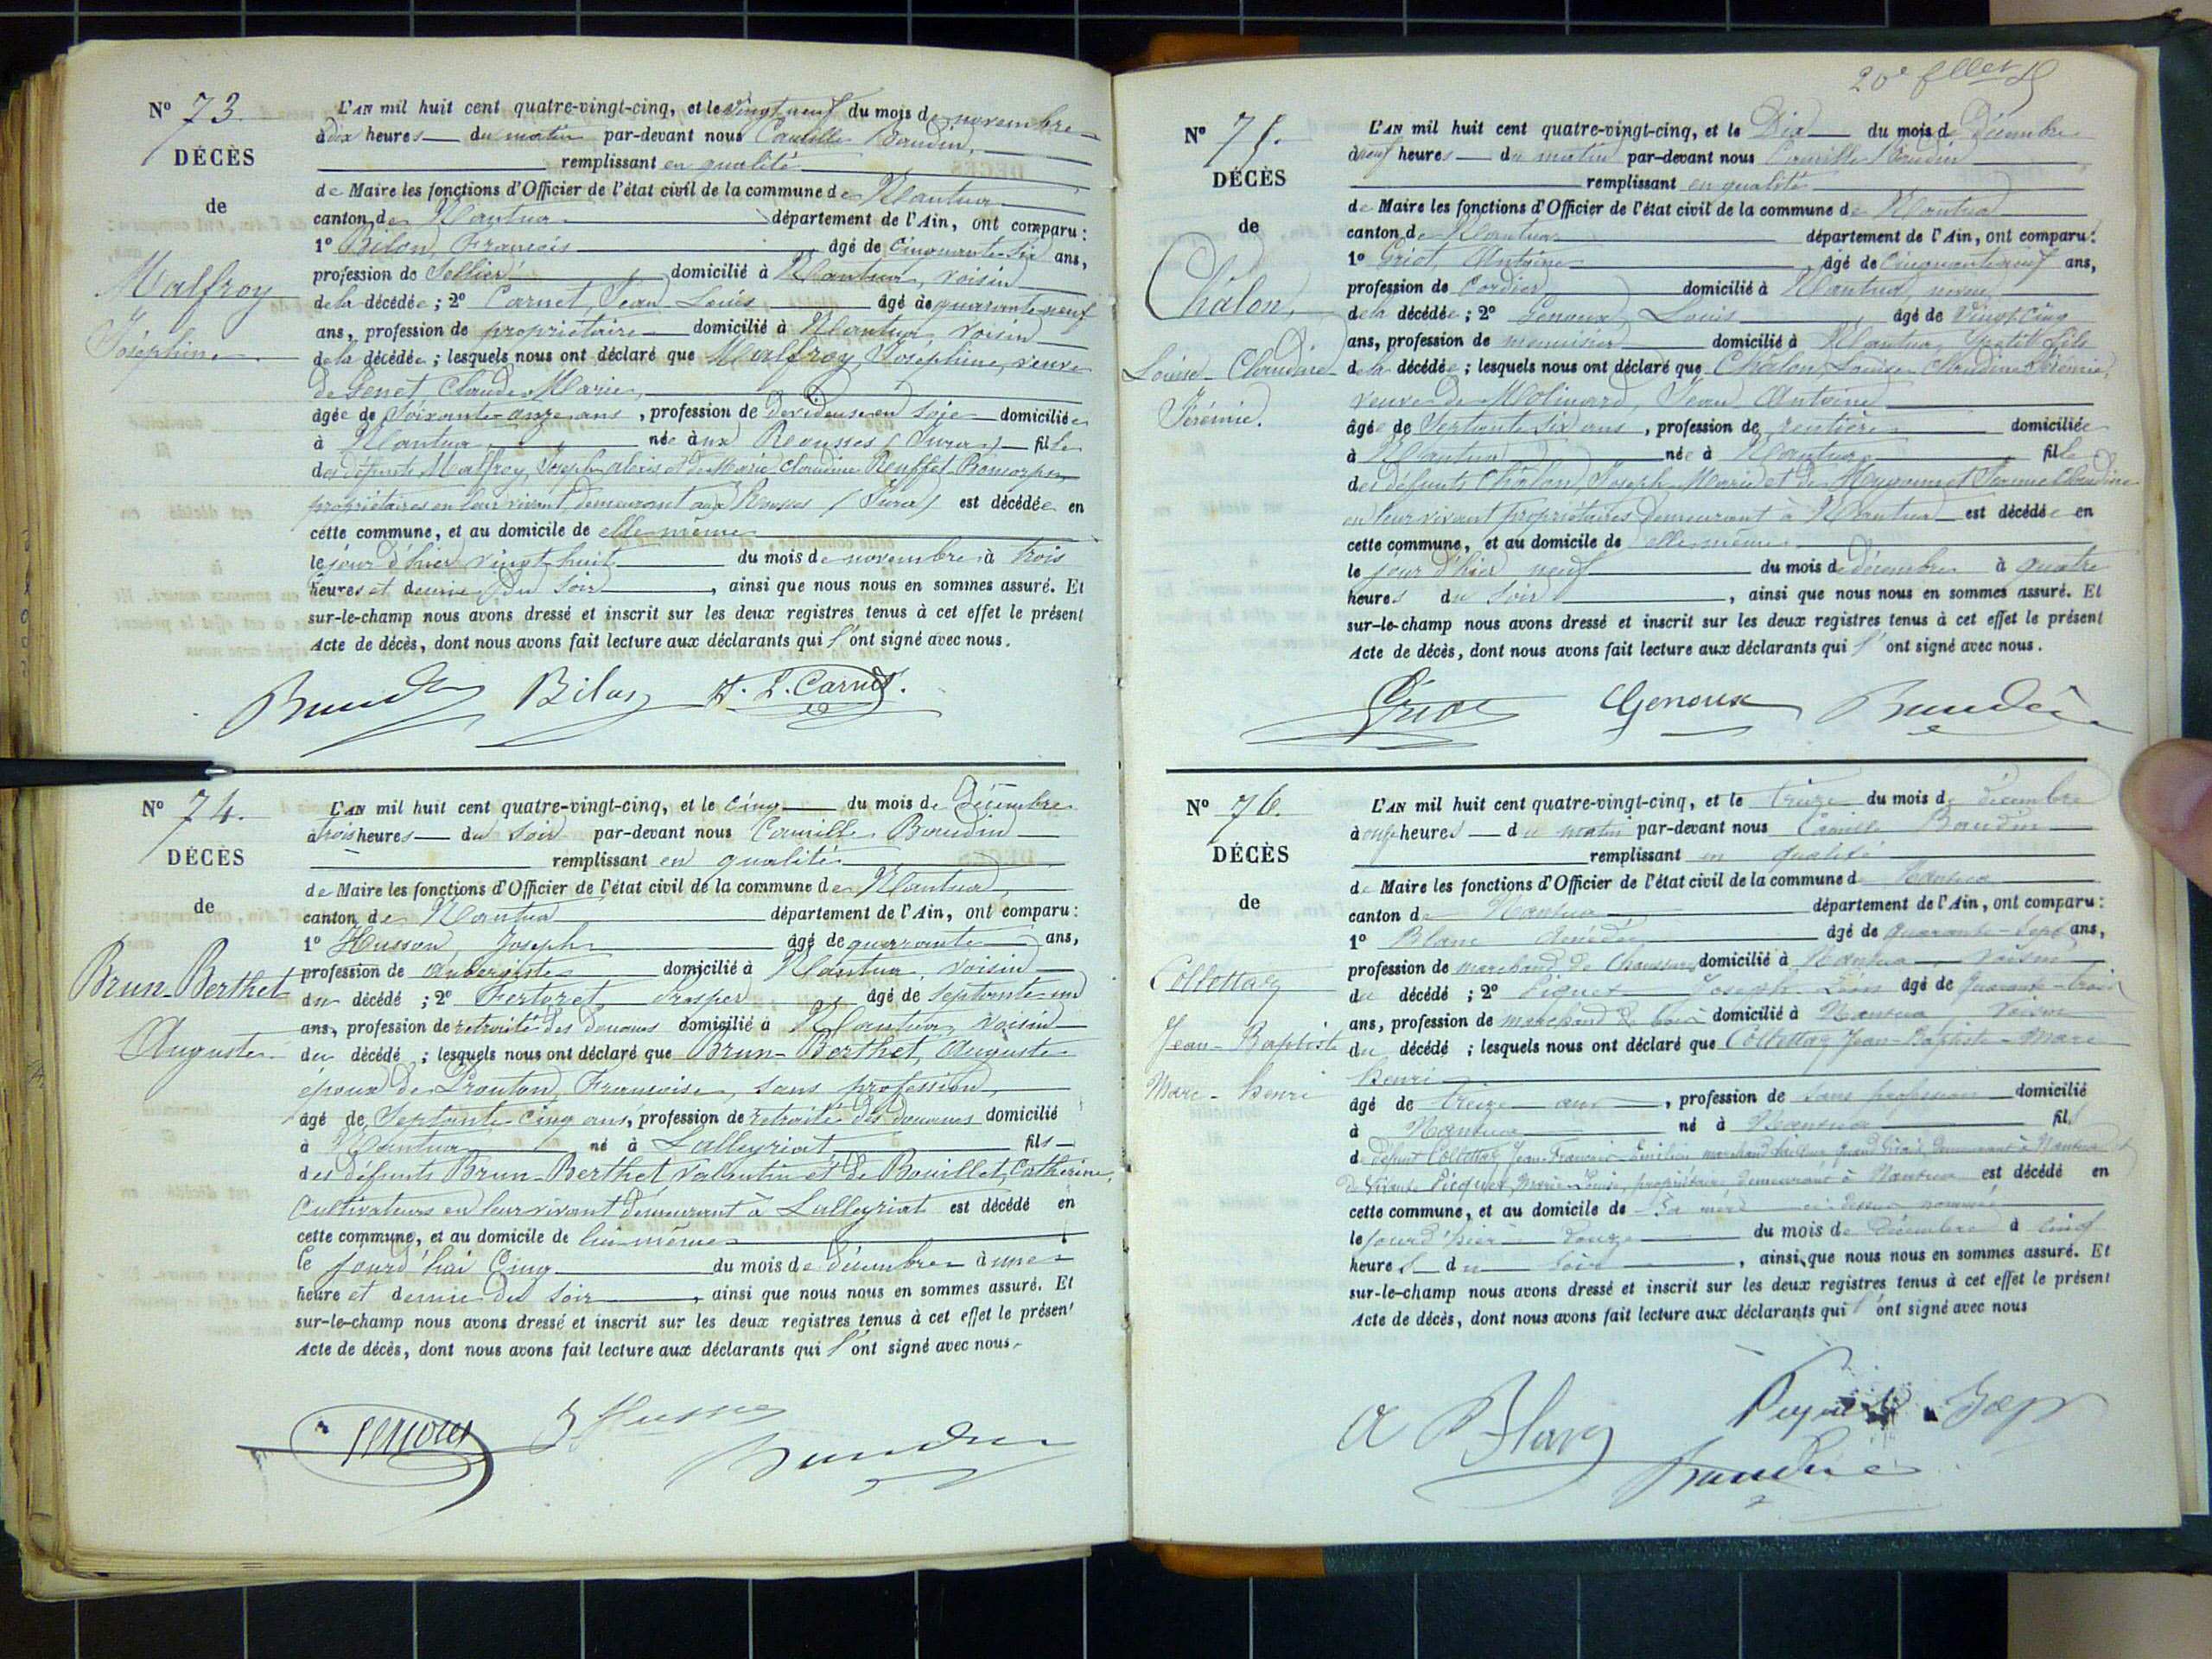 N° 73.
DÉCÈS
de
Malfroy
Joséphine
L'AN mil huit cent quatre-vingt-cinq, et le vingt neuf du mois de novembre
à dix heures du matin par-devant nous Camille Baudin,
remplissant en qualité
de Maire les fonctions d'Officier de l'état civil de la commune de Nantua
canton de Nantua département de l'Ain, ont comparu :
1° Bilon, François âgé de cinquante-six ans,
profession de Sellier, domicilié à Nantua, voisin
de la décédée ; 2° Carnet, Jean Louis âgé de quarante-neuf
ans, profession de propriétaire domicilié à Nantua, voisin
de la décédée ; lesquels nous ont déclaré que Malfroy, Joséphine, veuve
de Genet, Claude Marie,
âgée de Soixante-onze ans, profession de devideuse en soie domiciliée
à Nantua née aux Rousses (Jura) fille
des défunts Malfroy, Joseph alexis et de Marie Claudine
propriétaires en leur vivant, demeurant aux Rousses (Jura) est décédée en
cette commune, et au domicile de elle même
le jour d'hier vingt huit du mois de novembre à trois
heures et demie du soir, ainsi que nous nous en sommes assuré. Et
sur-le-champ nous avons dressé et inscrit sur les deux registres tenus à cet effet le présent
Acte de décès, dont nous avons fait lecture aux déclarants qui l'ont signé avec nous.
Baudin Bilon J. L. Carnet.
N° 74.
DÉCÈS
de
Brun-Berthet
Auguste
L'AN mil huit cent quatre-vingt-cinq, et le cinq du mois de Décembre
à trois heures du soir par-devant nous Camille Baudin
remplissant en qualité
de Maire les fonctions d'Officier de l'état civil de la commune de Nantua
canton de Nantua département de l'Ain, ont comparu :
1° Husson, Joseph âgé de quarante ans,
profession de aubergiste domicilié à Nantua, voisin
du décédé ; 2° Fertoret, Prosper âgé de septante un
ans, profession de retraité des douanes domicilié à Nantua, voisin
du décédé ; lesquels nous ont déclaré que Brun-Berthet, Auguste
époux de Prouton, Françoise, sans profession,
âgé de Septante cinq ans, profession de retraité des douanes domicilié
à Nantua né à Lalleyriat fils
des défunts Brun-Berthet, Valentin et de Bouillet, Catherine,
Cultivateurs en leur vivant demeurant à Lalleyriat est décédé en
cette commune, et au domicile de lui-même
le jourd'hui Cinq du mois de décembre à une
heure et demie du soir, ainsi que nous nous en sommes assuré. Et
sur-le-champ nous avons dressé et inscrit sur les deux registres tenus à cet effet le présent
Acte de décès, dont nous avons fait lecture aux déclarants qui l'ont signé avec nous.
J Husson
Baudin
N° 75.
DÉCÈS
de
Châlon,
Louise-Claudine
Jérémie.
L'AN mil huit cent quatre-vingt-cinq, et le Dix du mois de Décembre
à neuf heures du matin par-devant nous Camille Baudin
remplissant en qualité
de Maire les fonctions d'Officier de l'état civil de la commune de Nantua
canton de Nantua département de l'Ain, ont comparu :
1° Griot, Antoine, âgé de Cinquante neuf ans,
profession de Cordier domicilié à Nantua, neveu
de la décédée ; 2° Genoux, Louis, âgé de Vingt Cinq
ans, profession de menuisier domicilié à Nantua, petit fils
de la décédée ; lesquels nous ont déclaré que Châlon, Louise Claudine Jérémie,
veuve de Molinard, Jean Antoine
âgée de Septante Six ans, profession de rentière domiciliée
à Nantua née à Nantua fille
des défunts Châlon, Joseph Marie et de
en leur vivant propriétaires demeurant à Nantua est décédée en
cette commune, et au domicile de elle même
le jour d'hier neuf du mois de décembre à quatre
heures du soir, ainsi que nous nous en sommes assuré. Et
sur-le-champ nous avons dressé et inscrit sur les deux registres tenus à cet effet le présent
Acte de décès, dont nous avons fait lecture aux déclarants qui l'ont signé avec nous.
Griot Genoux Baudin
N° 76.
DÉCÈS
de
Collettaz
Jean-Baptiste
Marc-henri
L'AN mil huit cent quatre-vingt-cinq, et le treize du mois de décembre
à onze heures du matin par-devant nous Camille Baudin
remplissant en qualité
de Maire les fonctions d'Officier de l'état civil de la commune de Nantua
canton de Nantua département de l'Ain, ont comparu :
1° Blanc Amédée âgé de quarante-sept ans,
profession de marchand de chaussures domicilié à Nantua, voisin
du décédé ; 2° Piquet Joseph Léon âgé de quarante-trois
ans, profession de marchand de bois domicilié à Nantua voisin
du décédé ; lesquels nous ont déclaré que Collettaz Jean-Baptiste-Marc
henri
âgé de treize ans, profession de sans profession domicilié
à Nantua né à Nantua fils
de défunt Collettaz, Jean François Emilien demeurant à Nantua et
de vivante Picquet, Marie Louise, propriétaire demeurant à Nantua est décédé en
cette commune, et au domicile de sa mère ci-dessus nommée
le jour d'hier douze du mois de Décembre à cinq
heures du soir, ainsi que nous nous en sommes assuré. Et
sur-le-champ nous avons dressé et inscrit sur les deux registres tenus à cet effet le présent
Acte de décès, dont nous avons fait lecture aux déclarants qui l'ont signé avec nous
A Blanc
Baudin